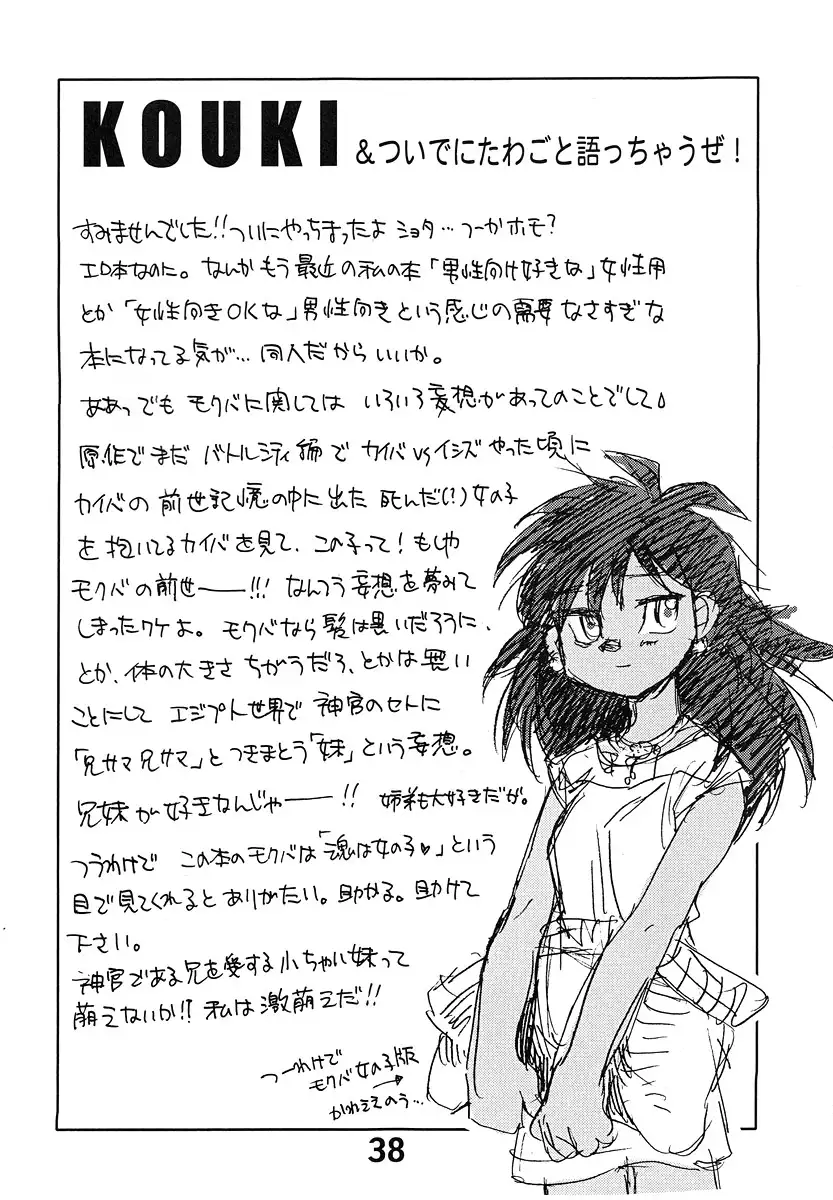 KOUKI &ついでにたわごと語っちゃうぜ!
すみませんでした!!ついにやっちまったよ ショタ…つーかホモ?
エロ本なのに。なんかもう最近の私の本「男性向け好きな」女性用
とか「女性向きOKな」男性向きという感じの需要なさすぎな
本になってる気が…同人だからいいか。
ああっでも モクバに関しては いろいろ妄想があってのことでして
原作でまだ バトルシティ編で カイバvsイシズやった頃に
カイバの前世記憶の中に出た 死んだ(!)女の子
を抱いてるカイバを見て、この子って!もしや
モクバの前世――!!! なんつう妄想を夢みて
しまったワケよ。モクバなら髪は黒いだろうに、
とか、体の大きさ ちがうだろ、とかは悪い
ことにして エジプト世界で 神官のセトに
「兄サマ兄サマ」と つきまとう「妹」という妄想。
兄妹が好きなんじゃ――!! 姉弟も大好きだが。
つうわけで この本のモクバは「魂は女の子♥」という
目で見てくれると ありがたい。助かる。助けて
下さい。
神官である兄を愛する小ちゃい妹って
萌えないか!?私は激萌えだ!!
つーわけで
モクバ女の子版→
38